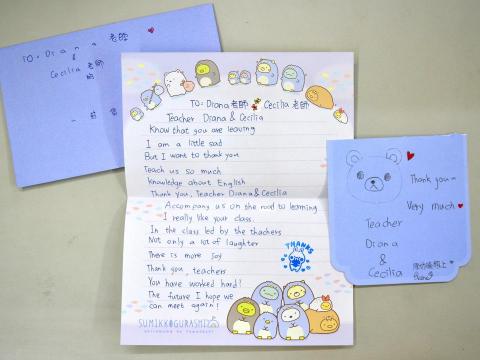 TO: Diana 老師
&
Cecilia 老師
TO: Diana老師 Cecilia 老師
Teacher Diana & Cecilia
Know that you are leaving
I am a little sad
But I want to thank you
Teach us so much
Knowledge about English
Thank you, Teacher Diana & Cecilia
Accompany us on the road to learning
I really like your class.
In the class led by the thachers
Not only a lot of laughter
There is more joy
Thank you, teachers
You have worked hard!
The future I hope we
can meet again!
THANKS
SUMIKKOGURASHI
Thank you~
Very much
Teacher
Diana
&
Cecilia